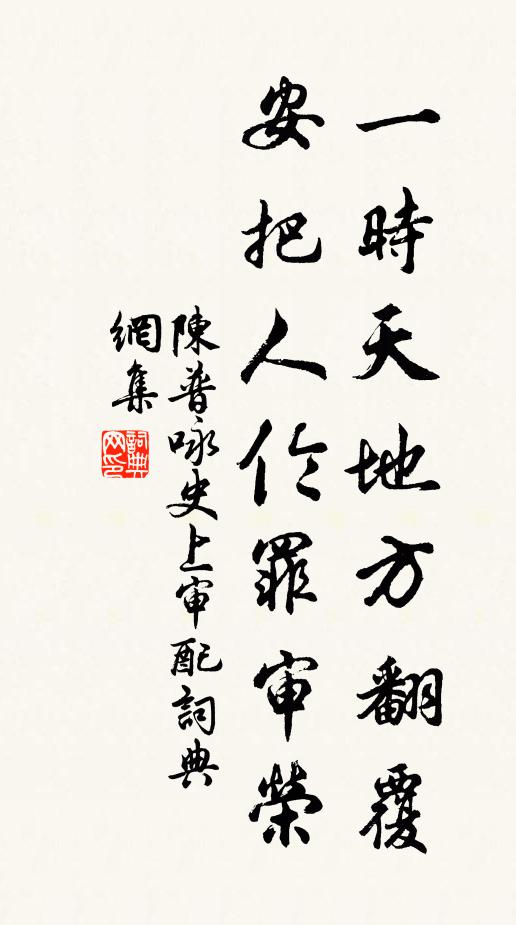 一時天地方翻覆
安把人伦罪审榮
陳普咏史上审配詞典
網集
詞典网印